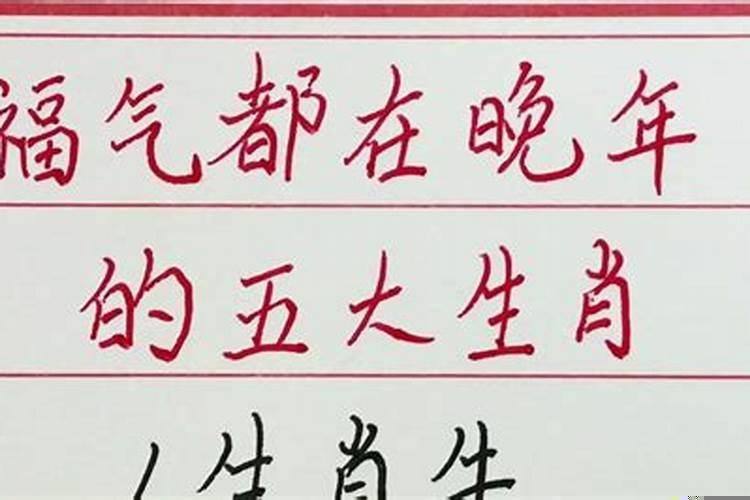 福气都在晚年
的五大生肖
1生肖牛